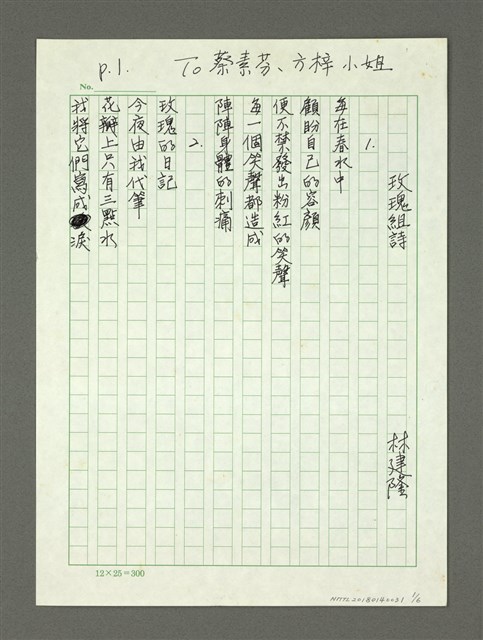 p.1. To 蔡素芬、方梓 小姐
No.
玫瑰組詩
林建隆
1.
每在春水中
顧盼自己的容顏
便不禁發出粉紅的笑聲
每一個笑聲都造成
陣陣身體的刺痛
2.
玫瑰的日記
今夜由我代筆
花瓣上只有三點水
我將它們寫成淚
12×25=300
NMTL20180140051 1/6